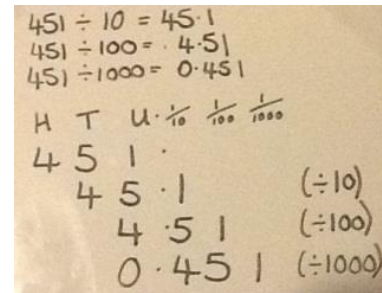 451 ÷ 10 = 45·1
451 ÷ 100 = · 4·51
451 ÷ 1000 = 0·451
H T U · 1/10 1/100 1/1000
4 5 1 ·
4 5 · 1 (÷10)
4 · 5 1 (÷100)
0 · 4 5 1 (÷1000)